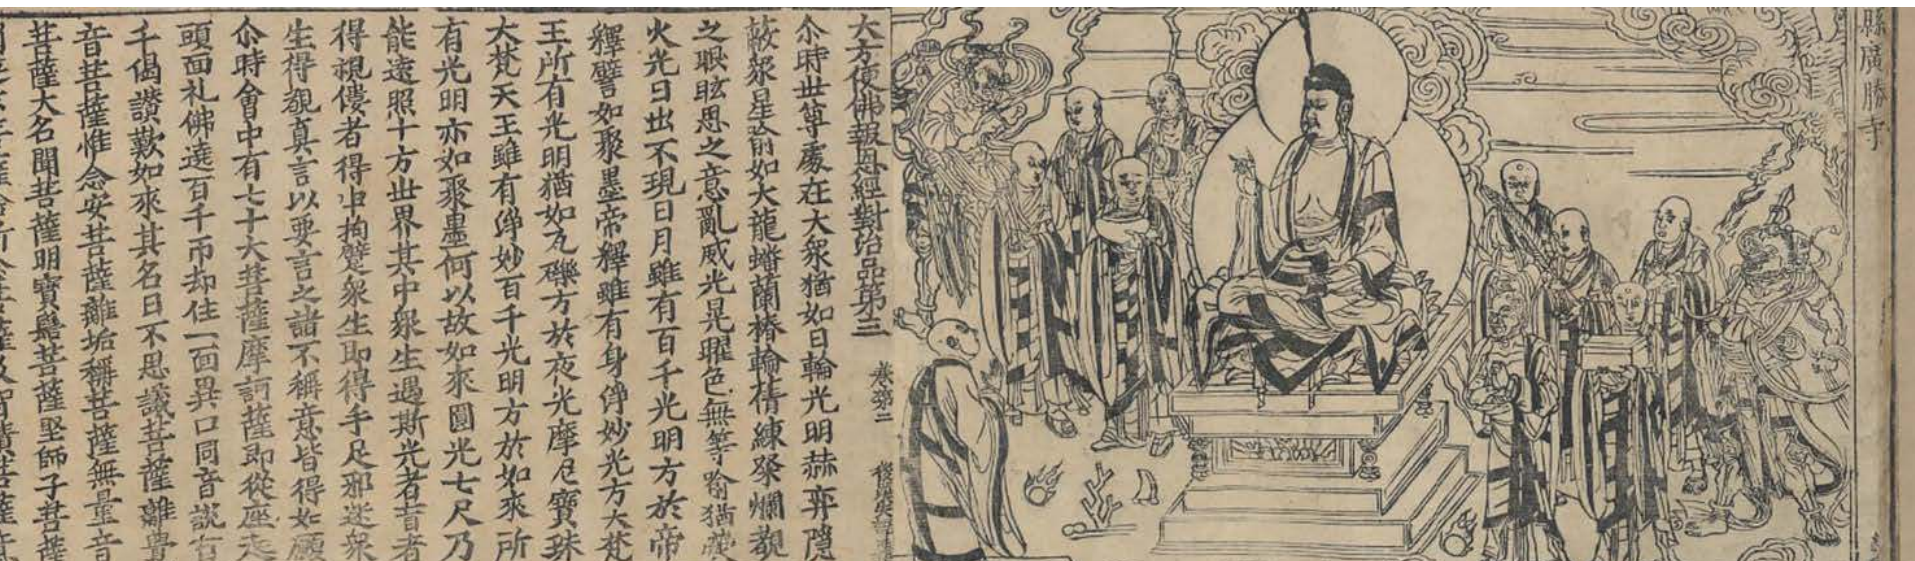 縣廣勝寺
大方便佛報恩經對治品第三
卷第二
尒時世尊處在大衆猶如日輪光明赫弈隱
蔽衆星喻如大龍蟠蘭椿輪倩練粲爛覩
之眼眩思之意亂威光晃曜色無等喻猶螢
火光日出不現日月雖有百千光明方於帝
釋譬如聚墨帝釋雖有身淨妙光方大梵
王所有光明猶如瓦礫方於夜光摩尼寶珠
大梵天王雖有淨妙百千光明方於如來所
有光明亦如聚墨何以故如來圓光七尺乃
能遠照十方世界其中衆生遇斯光者盲者
得視僂者得申拘躄衆生即得手足邪迷衆
生得覩真言以要言之諸不稱意皆得如願
尒時會中有七十大菩薩摩訶薩即從座起
頭面礼佛遶百千帀却住一面異口同音說百
千偈讚歎如來其名曰不思議菩薩離覺
音菩薩惟念安菩薩離垢稱菩薩無量音
菩薩大名聞菩薩明寶髻菩薩堅師子菩薩